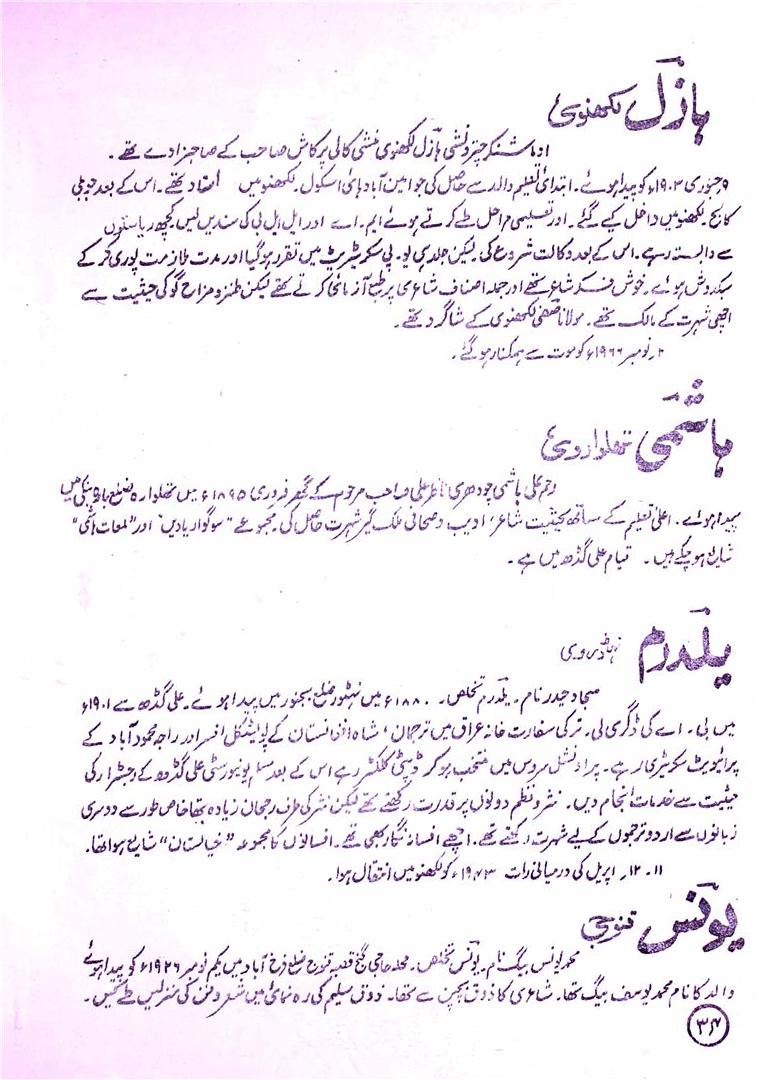 ہازل لکھنوی
اوما شنکر چترونشی ہازل لکھنوی منشی کالی پرکاش صاحب کے صاحبزادے تھے ۔
۹ر جنوری ۱۹۰۳ء کو پیدا ہوئے ۔ ابتدائی تعلیم والد سے حاصل کی جو امین آباد ہائی اسکول۔ لکھنؤ میں استاد تھے ۔ اس کے بعد جوبلی
کالج۔ لکھنؤ میں داخل کیے گئے ۔ اور تعلیمی مراحل طے کرتے ہوئے ایم ۔ اے اور ایل ایل بی کی سندیں لیں۔ کچھ ریاستوں
سے وابستہ رہے۔ اس کے بعد وکالت شروع کی۔ لیکن جلد ہی یو۔ پی سکریٹریٹ میں تقرر ہو گیا اور مدت ملازمت پوری کر کے
سبکدوش ہوئے ۔ خوش فکر شاعر تھے اور جملہ اصناف شاعری پر طبع آزمائی کرتے تھے لیکن طنز و مزاح گو کی حیثیت سے
اچھی شہرت کے مالک تھے ۔ مولانا صفی لکھنوی کے شاگرد تھے ۔
۲ر نومبر ۱۹۶۶ء کو موت سے ہمکنار ہو گئے ۔
ہاشمی تھلواروی
رحم علی ہاشمی چودھری ناظر علی صاحب مرحوم کے گھر فروری ۱۸۹۵ء میں تھلوارہ ضلع بارہ بنکی میں
پیدا ہوئے ۔ اعلیٰ تعلیم کے ساتھ بحیثیت شاعر، ادیب و صحافی ملک گیر شہرت حاصل کی۔ مجموعے "سوگوار یادیں" اور "لمعات ہاشمی"
شایع ہو چکے ہیں ۔ قیام علی گڈھ میں ہے ۔
یلدرم
سجاد حیدر نام ۔ یلدرم تخلص ۔ ۱۸۸۰ء میں نہٹور ضلع بجنور میں پیدا ہوئے ۔ علی گڈھ سے ۱۹۰۱ء
میں بی ۔ اے کی ڈگری لی۔ ترکی سفارت خانہ عراق میں ترجمان، شاہ افغانستان کے پولیٹیکل افسر اور راجہ محمود آباد کے
پرائیویٹ سکریٹری رہے ۔ پراونشل سروس میں منتخب ہو کر ڈپٹی کلکٹر رہے اس کے بعد مسلم یونیورسٹی علی گڈھ کے رجسٹرار کی
حیثیت سے خدمات انجام دیں ۔ نثر و نظم دونوں پر قدرت رکھتے تھے لیکن نثر کی طرف رجحان زیادہ تھا خاص طور سے دوسری
زبانوں سے اردو ترجموں کے لیے شہرت رکھتے تھے ۔ اچھے افسانہ نگار بھی تھے ۔ افسانوں کا مجموعہ "خیالستان" شایع ہوا تھا۔
۱۱ ۔ ۱۲ر اپریل کی درمیانی رات ۱۹۴۳ء کو لکھنؤ میں انتقال ہوا۔
یونس قنوجی
محمد یونس بیگ نام ۔ یونس تخلص ۔ محلہ حاجی گنج قصبہ قنوج ضلع فرخ آباد میں یکم نومبر ۱۹۲۶ء کو پیدا ہوئے
والد کا نام محمد یوسف بیگ تھا۔ شاعری کا ذوق بچپن سے تھا۔ ذوق سلیم کی رہ نمائی میں شعر و فن کی منزلیں طے کیں ۔
۳۴